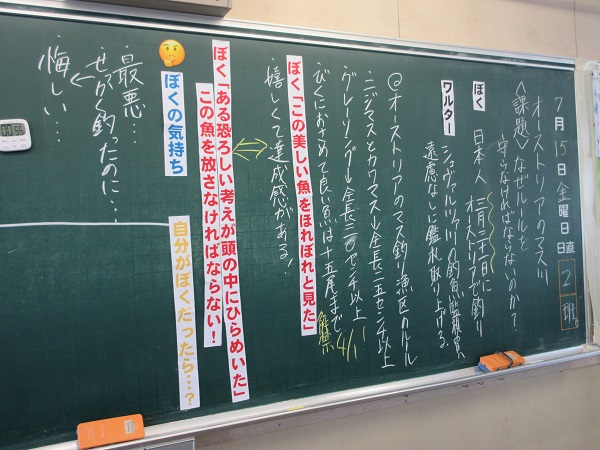 7月15日金曜日
日直
2班
オーストリアのマス川
〈課題〉なぜルールを
守らなければならないのか?
ぼく
日本人 三月二十一日に
オーストリアで釣り
ワルター
シュヴァルツァ川の釣魚監視員
遠慮なしに鑑札取り上げる。
@オーストリアのマス釣り漁区のルール
ニジマスとカワマス→全長二五センチ以上
グレーリング→全長三〇センチ以上
解禁 4/1
びくにおさめて良い魚は十五尾まで
ぼく「この美しい魚をほれぼれと見た」
嬉しくて達成感がある!
ぼく「ある恐ろしい考えが頭の中にひらめいた」
この魚を放さなければならない!
ぼくの気持ち
自分がぼくだったら…?
最悪…
せっかく釣ったのに…
悔しい…